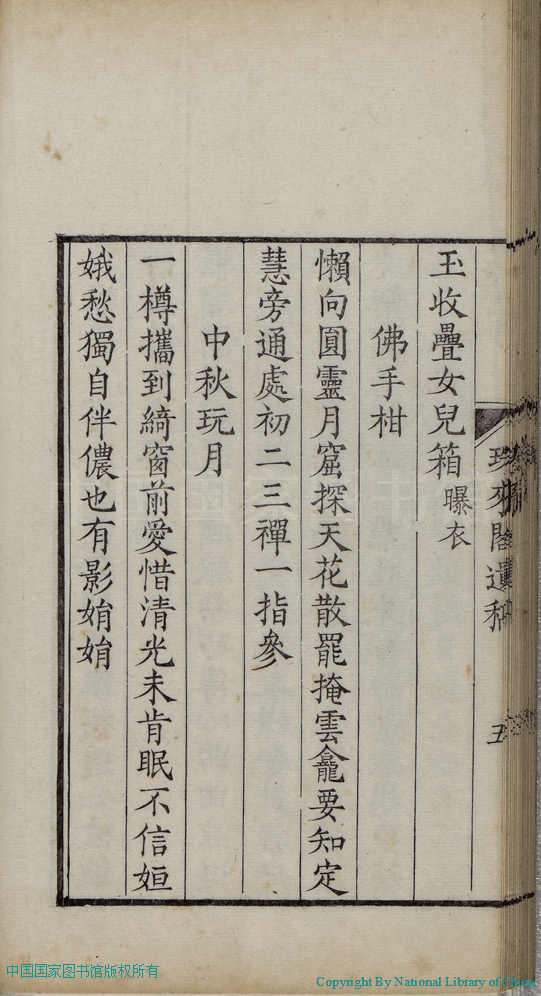 玉收疊女兒箱曝衣
佛手柑
懶向圓靈月窟探天花散罷掩雲龕要知定
慧旁通處初二三禪一指參
中秋玩月
一樽攜到綺窗前愛惜清光未肯眠不信姮
娥愁獨自伴儂也有影娟娟
五
中国国家图书馆版权所有
Copyright By National Library of China